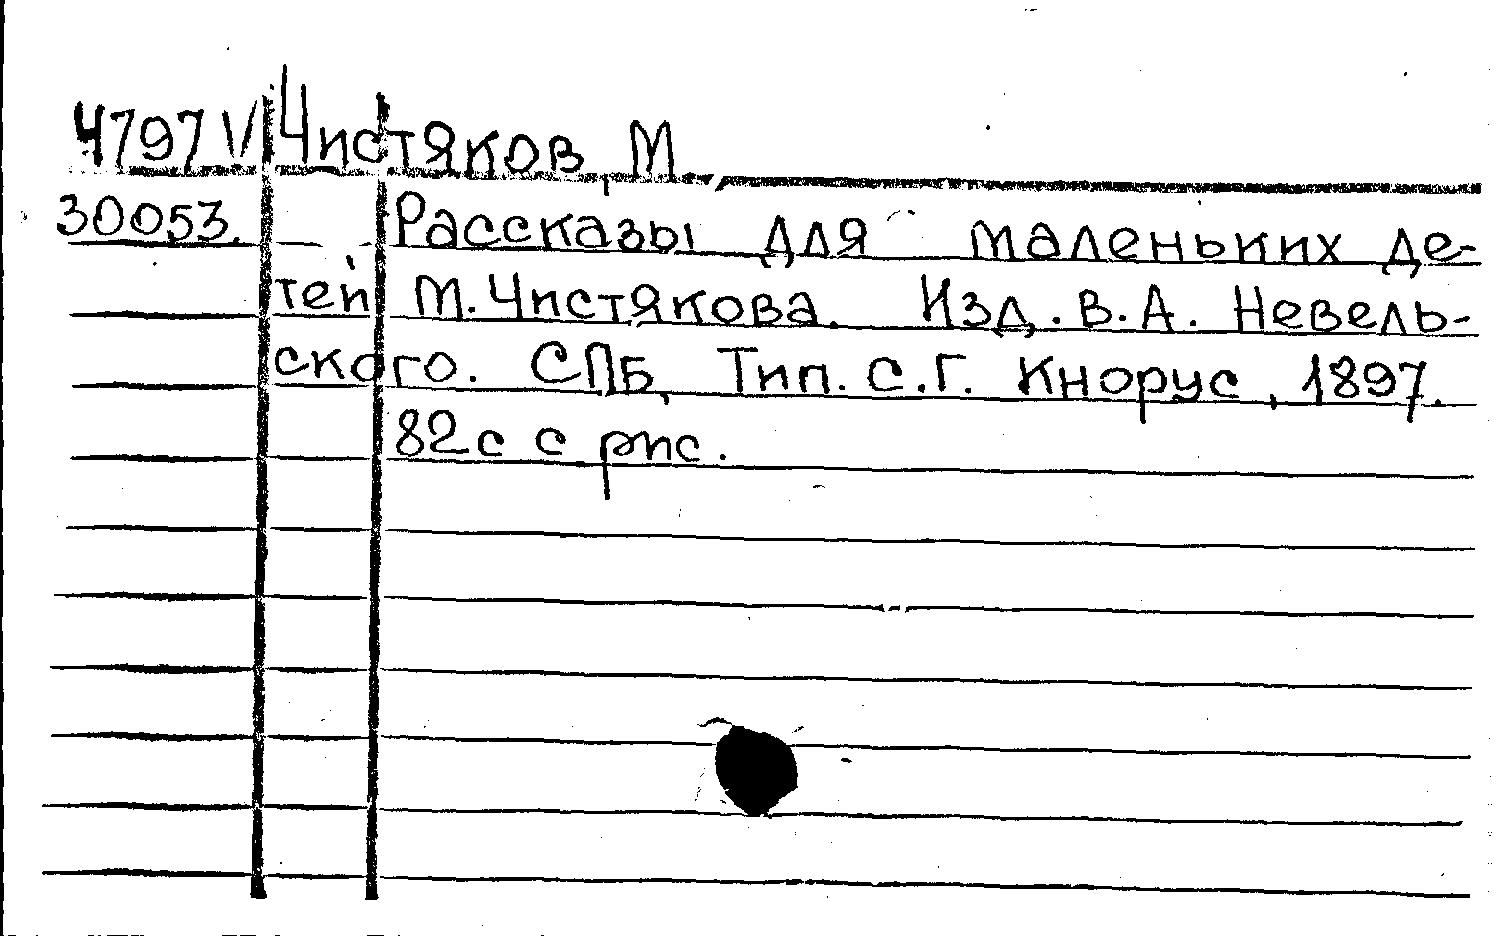 4797 V Чистяков, М
30053. Рассказы для маленьких де-
тей М. Чистякова. Изд. В. А. Невель-
ского. СПБ, Тип. С. Г. Кнорус, 1897.
82с с рис.